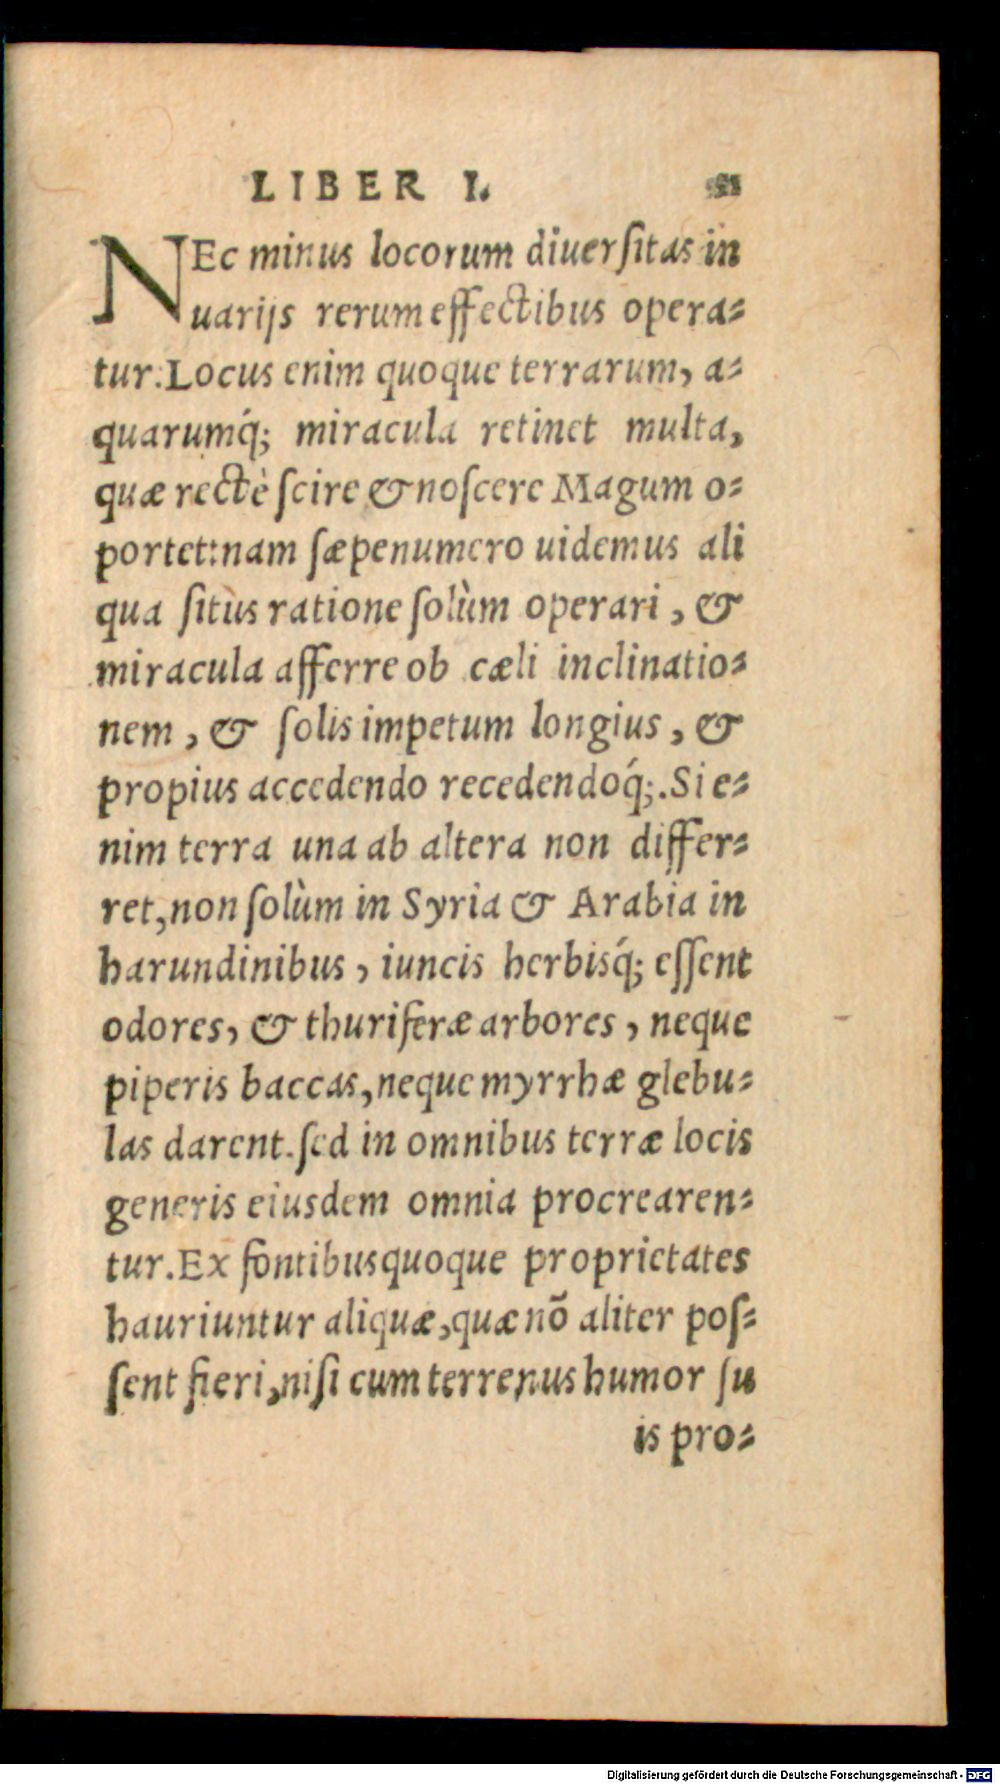 LIBER I.
NEc minus locorum diuerſitas in
uarijs rerum effectibus opera-
tur. Locus enim quoque terrarum, a-
quarumq́; miracula retinet multa,
quæ rectè ſcire & noſcere Magum o-
portet: nam ſæpenumero uidemus ali
qua ſitus ratione ſolùm operari, &
miracula afferre ob cæli inclinatio-
nem, & ſolis impetum longius, &
propius accedendo recedendoq́;. Si e-
nim terra una ab altera non differ-
ret, non ſolùm in Syria & Arabia in
harundinibus, iuncis herbisq́; eſſent
odores, & thuriferæ arbores, neque
piperis baccas, neque myrrhæ glebu-
las darent. ſed in omnibus terræ locis
generis eiusdem omnia procrearen-
tur. Ex fontibus quoque proprietates
hauriuntur aliquæ, quæ nō aliter poſ-
ſent fieri, niſi cum terrenus humor ſu
is pro-
Digitalisierung gefördert durch die Deutsche Forschungsgemeinschaft - DFG